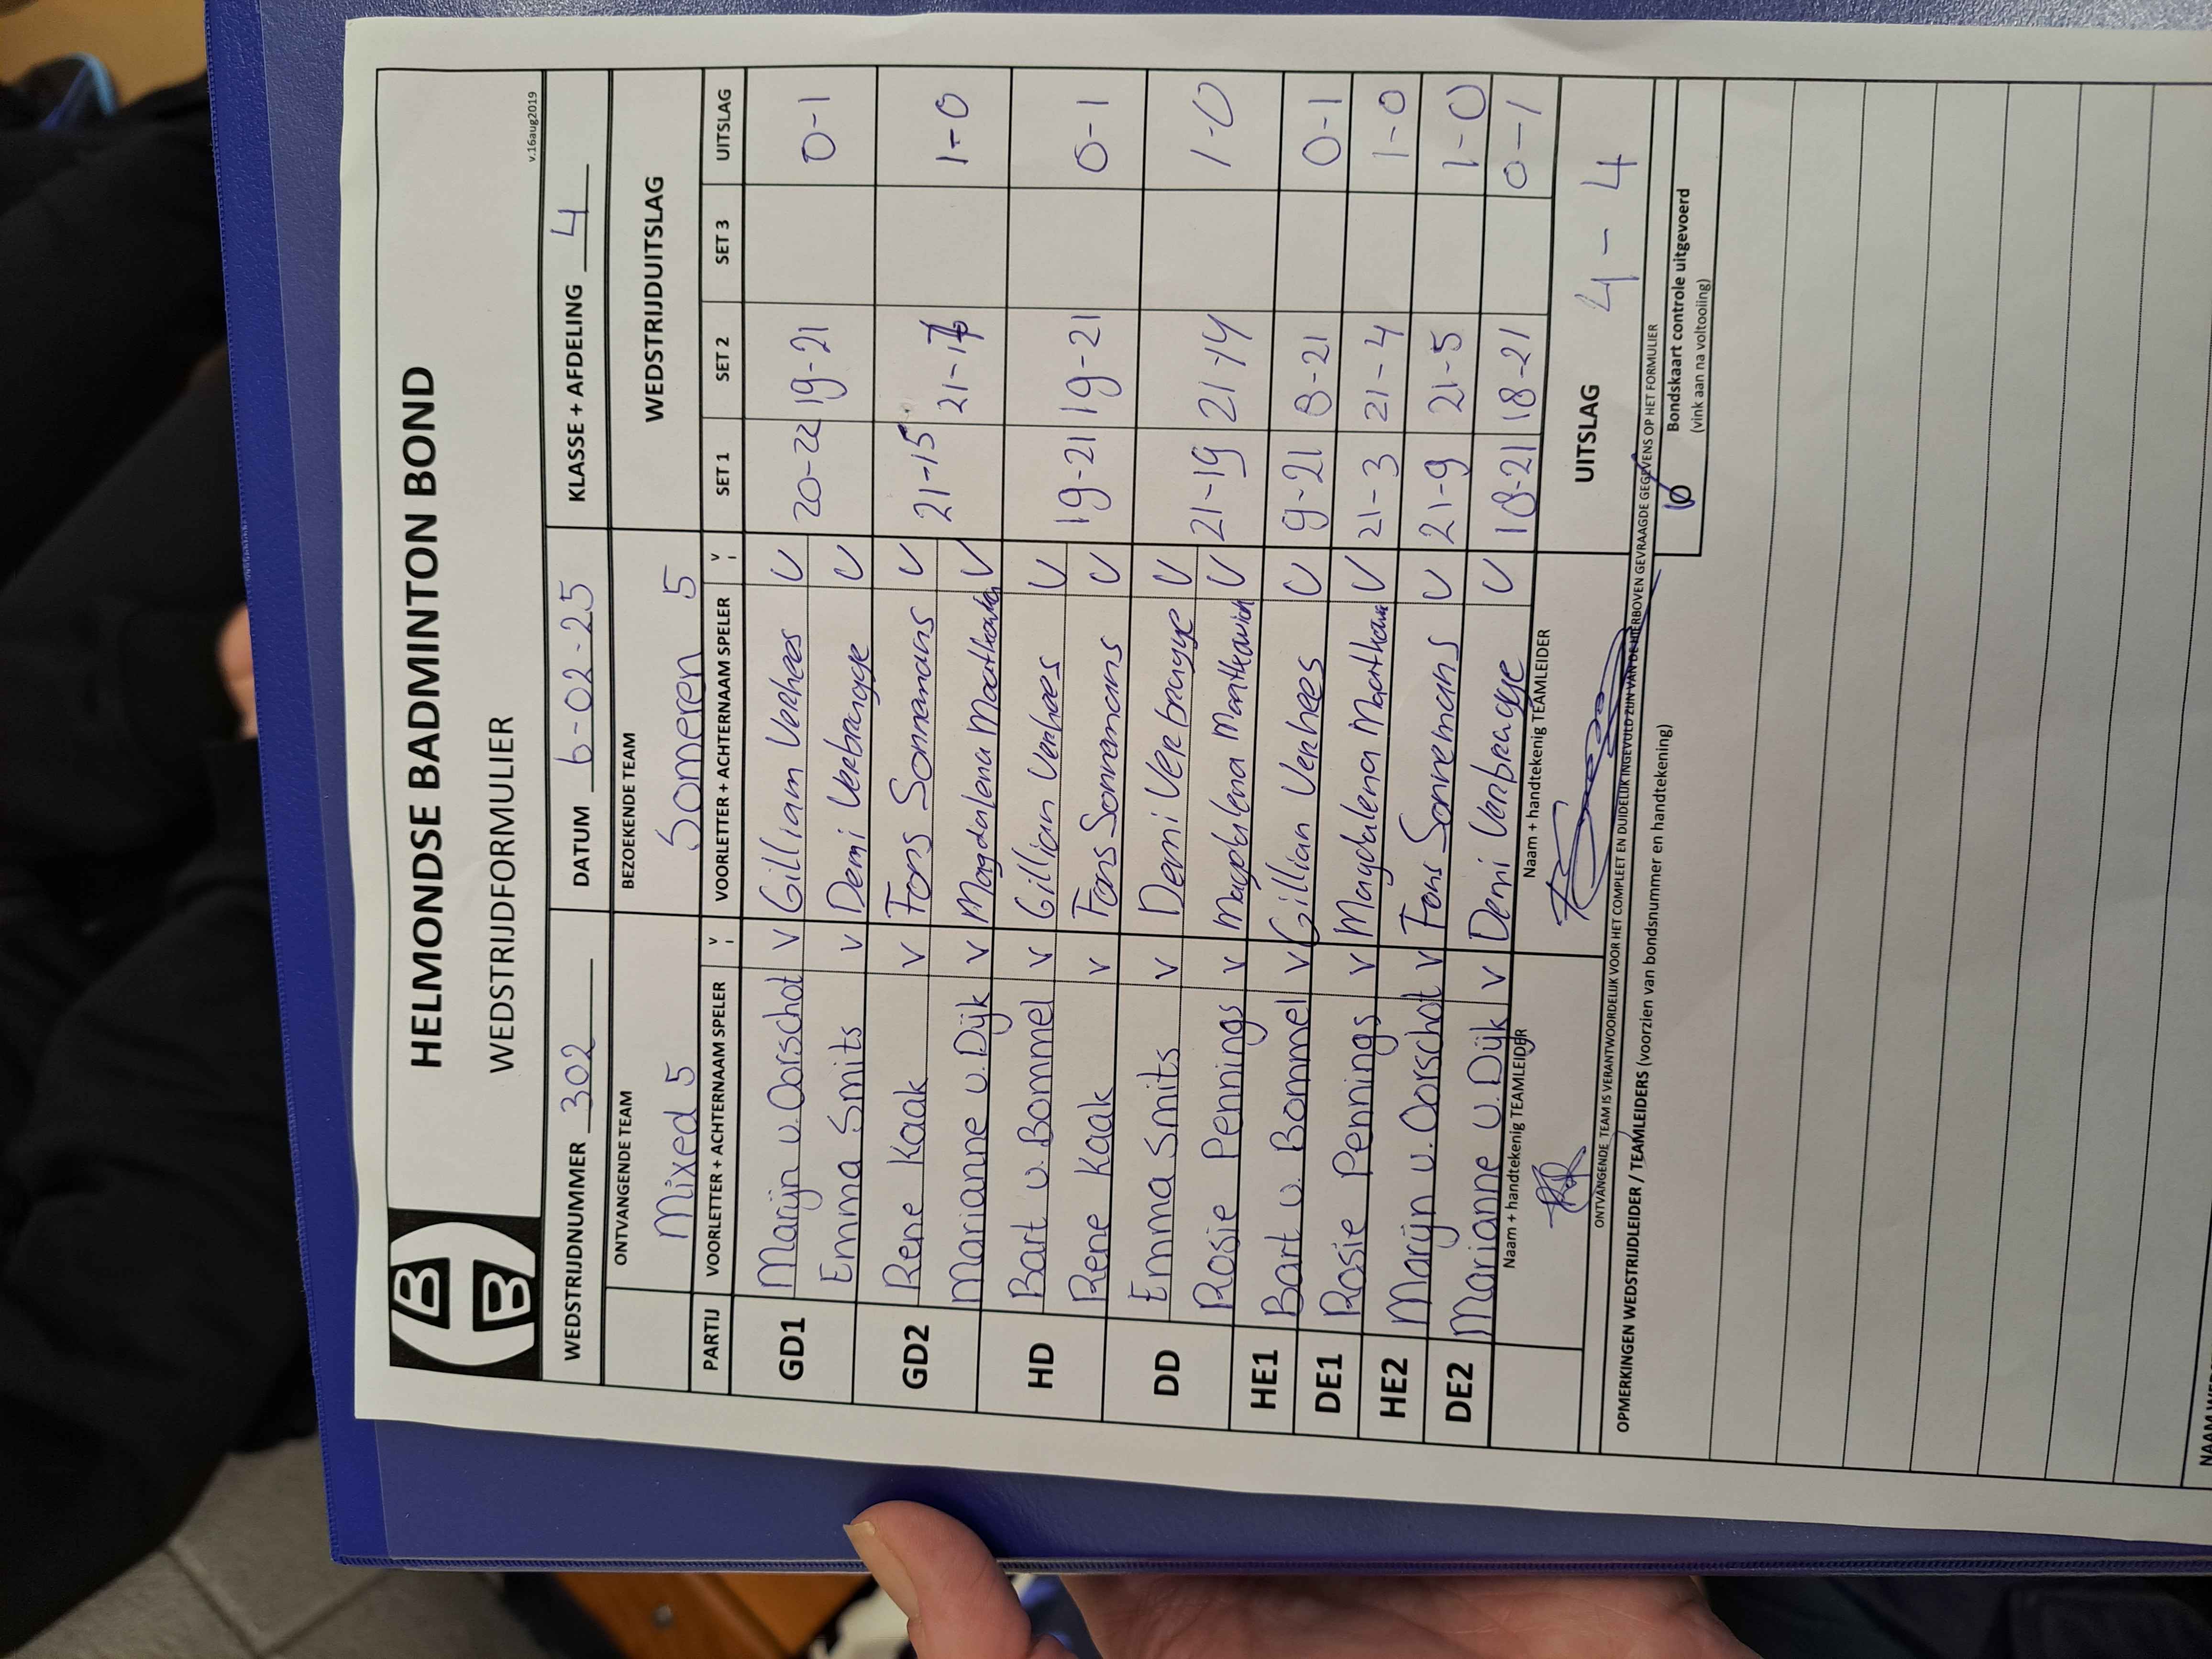 HBB
HELMONDSE BADMINTON BOND
WEDSTRIJDFORMULIER
v.16aug2019
WEDSTRIJDNUMMER 302 DATUM 6-02-25 KLASSE + AFDELING 4
ONTVANGENDE TEAM BEZOEKENDE TEAM WEDSTRIJDUITSLAG
Mixed 5 Someren 5
PARTIJ VOORLETTER + ACHTERNAAM SPELER V VOORLETTER + ACHTERNAAM SPELER V SET 1 SET 2 SET 3 UITSLAG
GD1 Marijn v. Oorschot V Gilliam Verhees V 20-22 19-21 0-1
Emma Smits V Demi Verbrugge V
GD2 Rene Kaak V Fons Sonnemans V 21-15 21-17 1-0
Marianne v. Dijk V Magdalena V
HD Bart v. Bommel V Gillian Verhees V 19-21 19-21 0-1
Rene Kaak V Fons Sonnemans V
DD Emma Smits V Demi Verbrugge V 21-19 21-14 1-0
Rosie Pennings V Magdalena V
HE1 Bart v. Bommel V Gillian Verhees V 9-21 8-21 0-1
DE1 Rosie Pennings V Magdalena V 21-3 21-4 1-0
HE2 Marijn v. Oorschot V Fons Sonnemans V 21-9 21-5 1-0
DE2 Marianne v. Dijk V Demi Verbrugge V 18-21 18-21 0-1
Naam + handtekenig TEAMLEIDER Naam + handtekenig TEAMLEIDER UITSLAG 4-4
ONTVANGENDE TEAM IS VERANTWOORDELIJK VOOR HET COMPLEET EN DUIDELIJK INGEVULD ZIJN VAN DE HIERBOVEN GEVRAAGDE GEGEVENS OP HET FORMULIER
OPMERKINGEN WEDSTRIJDLEIDER / TEAMLEIDERS (voorzien van bondsnummer en handtekening)
Bondskaart controle uitgevoerd
(vink aan na voltooiing)